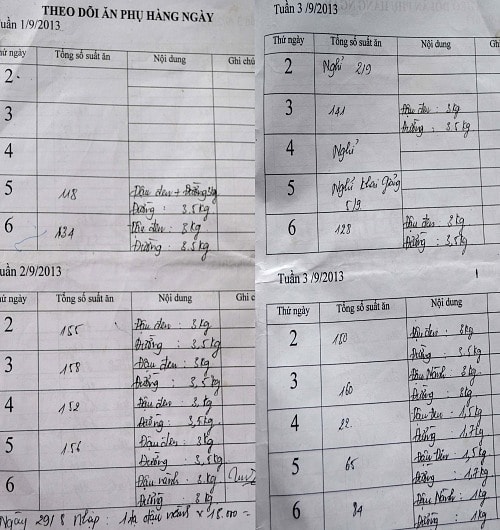 THEO DÕI ĂN PHỤ HÀNG NGÀY
Tuần 1/9/2013
Thứ ngày Tổng số suất ăn Nội dung Ghi chú
2
3
4
5 118 Đậu đen + Đường 3kg
Đường : 3,5kg
6 134 Đậu đen : 3kg
Đường : 3.5kg
Tuần 2/9/2013
Thứ ngày Tổng số suất ăn Nội dung Ghi c
2 155 Đậu đen : 3kg
Đường : 3,5kg
3 158 Đậu đen : 3kg
Đường : 3,5kg
4 152 Đậu đen : 3kg
Đường : 3,5kg
5 156 Đậu đen : 3kg
Đường : 3,5kg
6 Đậu nành : 3kg
Đường : 3kg
Ngày 29/8 nhập : 1 đậu nành x 18.000 =
Tuần 3 /9/2013
Thứ ngày Tổng số suất ăn Nội dung
2 Nghỉ 2/9
3 141 Đậu đen : 3kg
Đường : 3.5kg
4 Nghỉ
5 Nghỉ khai giảng
5/9
6 128 Đậu đen : 3kg
Đường : 3.5kg
Tuần 3 /9/2013
Thứ ngày Tổng số suất ăn Nội dung
2 150 Đậu đen : 3kg
Đường : 3.5kg
3 160 Đậu Nành : 3kg
Đường : 3kg
4 22 Đậu đen : 1,5kg
Đường : 1,7kg
5 65 Đậu đen : 1,5kg
Đường : 1,7kg
6 84 Đậu Nành : 1kg
Đường : 1kg